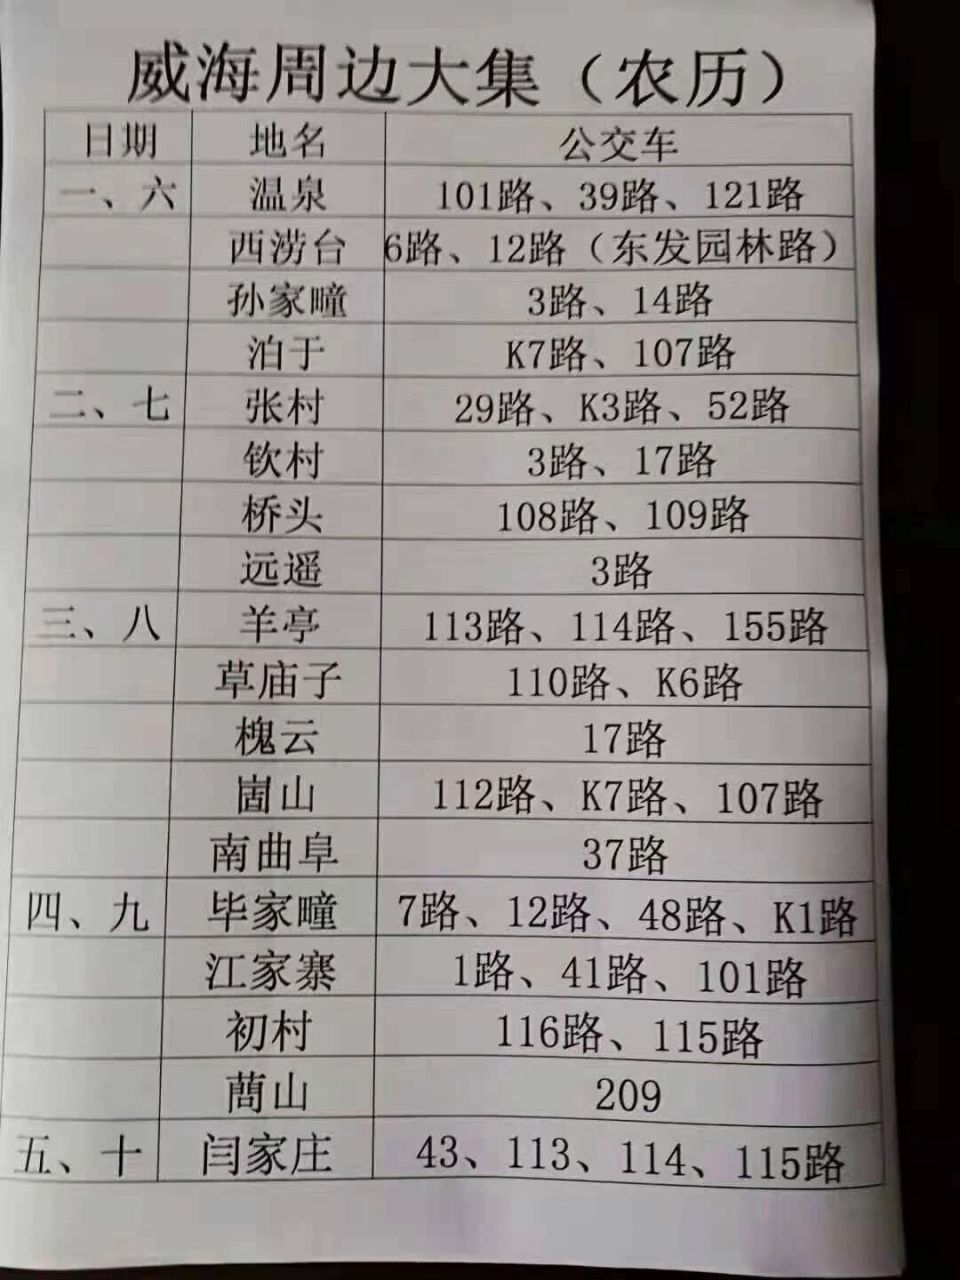 威海周边大集（农历）
日期 地名 公交车
一、六 温泉 101路、39路、121路
西涝台 6路、12路（东发园林路）
孙家疃 3路、14路
泊于 K7路、107路
二、七 张村 29路、K3路、52路
钦村 3路、17路
桥头 108路、109路
远遥 3路
三、八 羊亭 113路、114路、155路
草庙子 110路、K6路
槐云 17路
崮山 112路、K7路、107路
南曲阜 37路
四、九 毕家疃 7路、12路、48路、K1路
江家寨 1路、41路、101路
初村 116路、115路
蔄山 209
五、十 闫家庄 43、113、114、115路